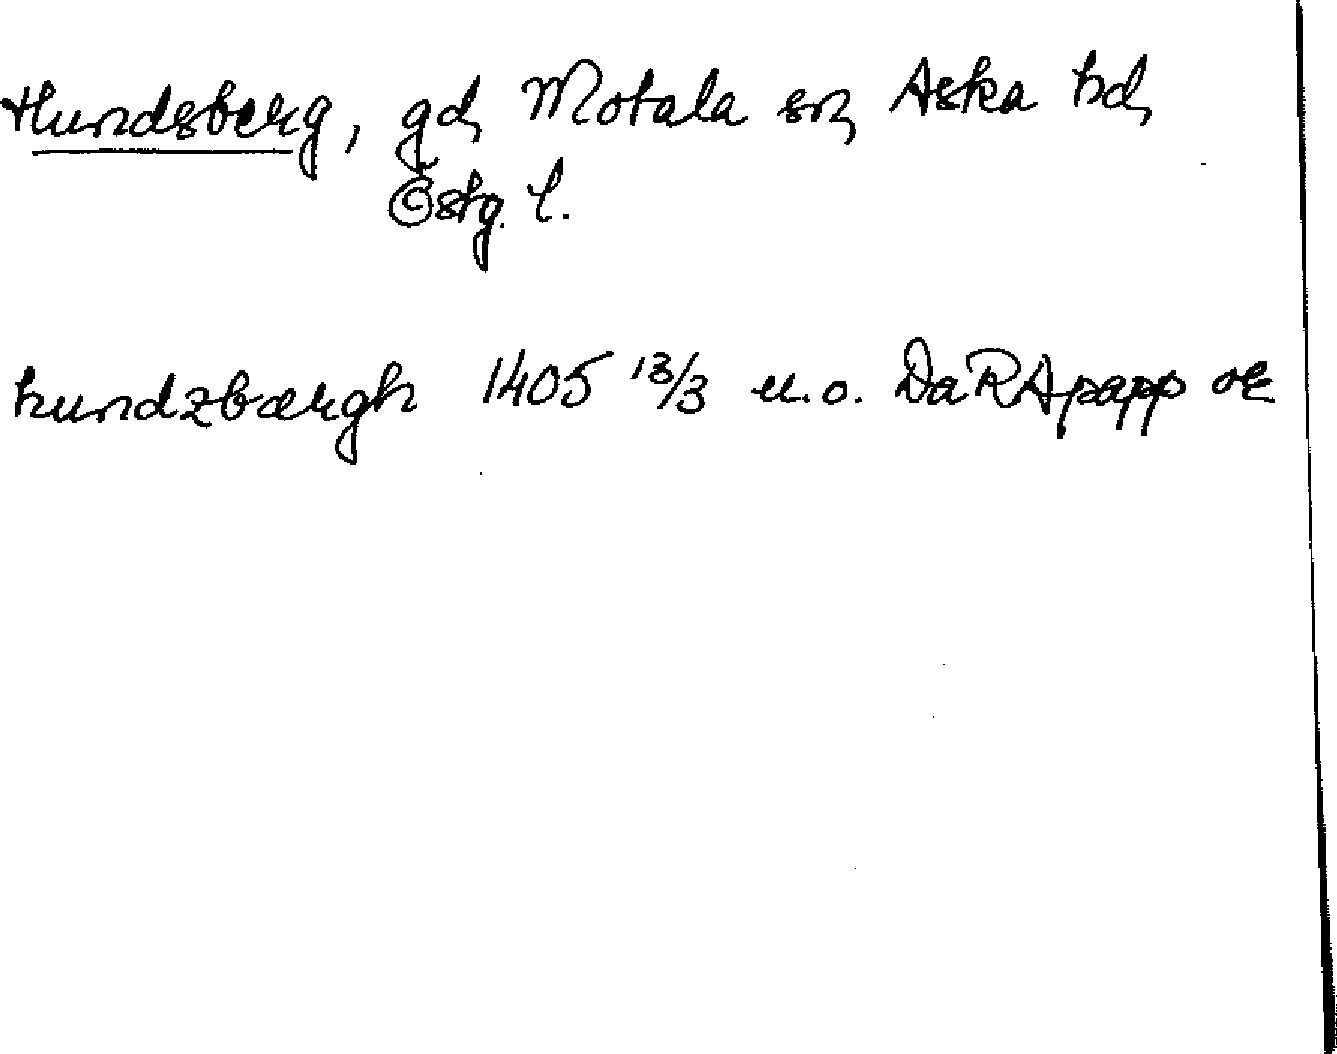 Hundsberg, gd, Motala sn, Aska hd,
Östg. l.
hundzbærgh 1405 13/3 u.o. DaRApapp or